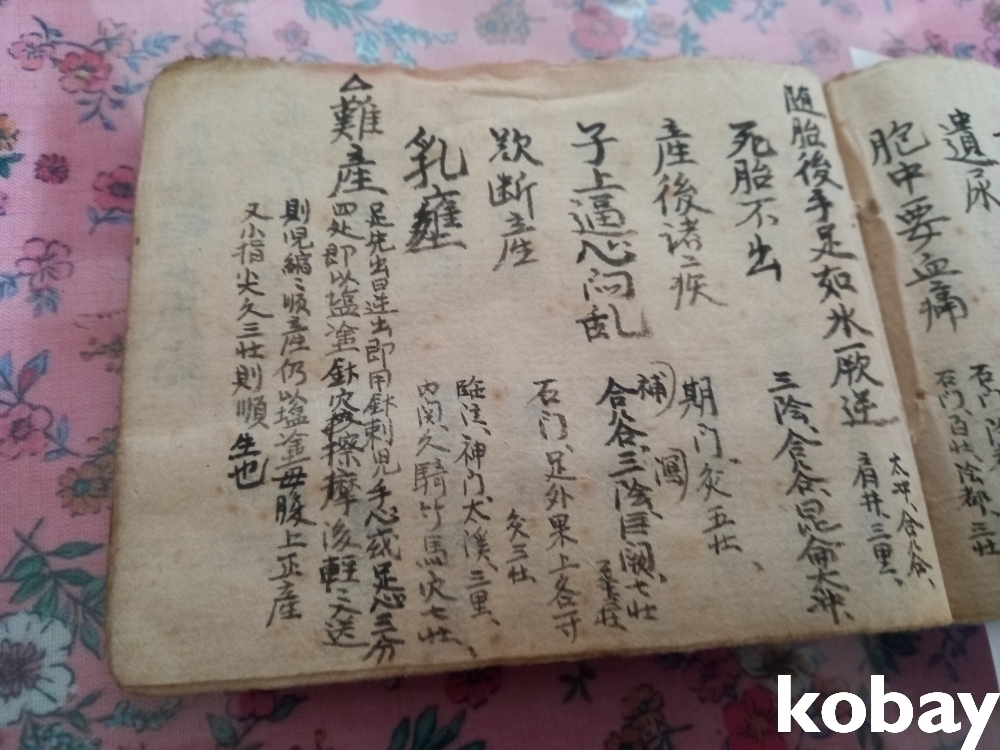 遺尿
石門
胞中要血痛
石門、百壮、陰都、三壮
随胎後手足如氷厥逆
太冲、合谷、
肩井、三里、
死胎不出
三陰、合谷、昆侖太冲、
産後諸〻疾
期门、灸五壮、
子上逼心悶乱
補 瀉
合谷、三陰、巨闕、七壮
欬断産
石门、足外果上各一寸
灸三壮
乳癰
臨泣、神门、太溪、三里、
内関、久騎竹馬穴七壮、
△難産
足先出曰逆出即用針刺児手心或足心三分
四处即以塩塗針穴擦摩後軽〻送
則児縮〻順産仍以塩塗母腹上正産
又小指尖久三壮則順生也
kobay